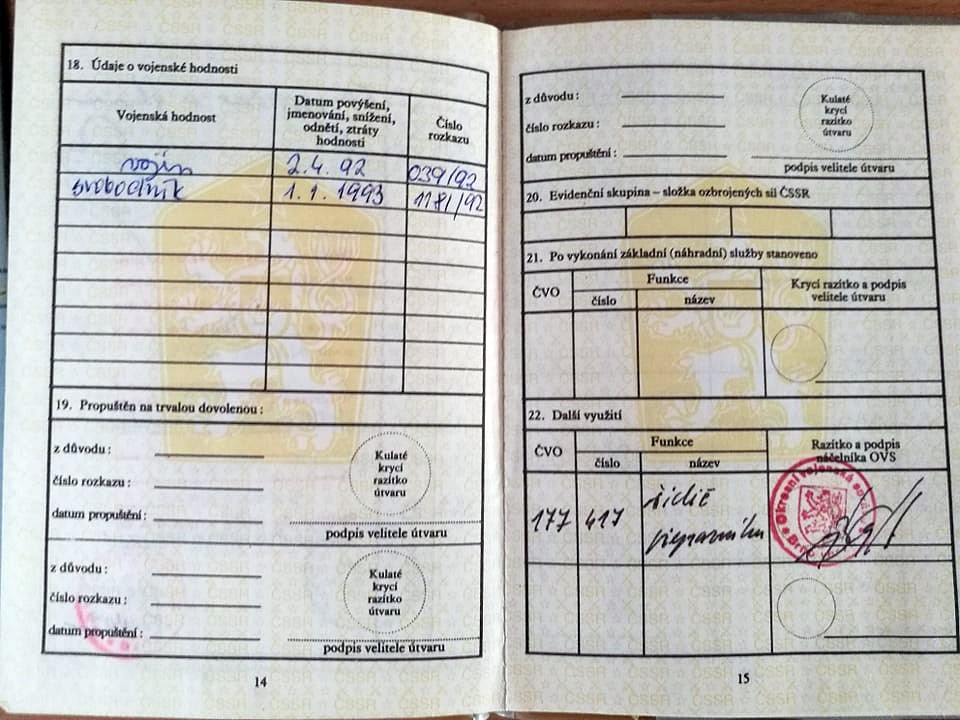 18. Údaje o vojenské hodnosti
Vojenská hodnost
Datum povýšení,
jmenování, snížení,
odnětí, ztráty
hodnosti
Číslo
rozkazu
vojín 2.4.92 039/92
svobodník 1.1.1993 1181/92
19. Propuštěn na trvalou dovolenou :
z důvodu :
číslo rozkazu :
datum propuštění :
Kulaté
krycí
razítko
útvaru
podpis velitele útvaru
z důvodu :
číslo rozkazu :
datum propuštění :
Kulaté
krycí
razítko
útvaru
podpis velitele útvaru
14
z důvodu :
číslo rozkazu :
datum propuštění :
Kulaté
krycí
razítko
útvaru
podpis velitele útvaru
20. Evidenční skupina – složka ozbrojených sil ČSSR
21. Po vykonání základní (náhradní) služby stanoveno
ČVO
Funkce
číslo název
Krycí razítko a podpis
velitele útvaru
22. Další využití
ČVO
Funkce
číslo název
Razítko a podpis
náčelníka OVS
177 417 řidič
Okresní vojenská
15